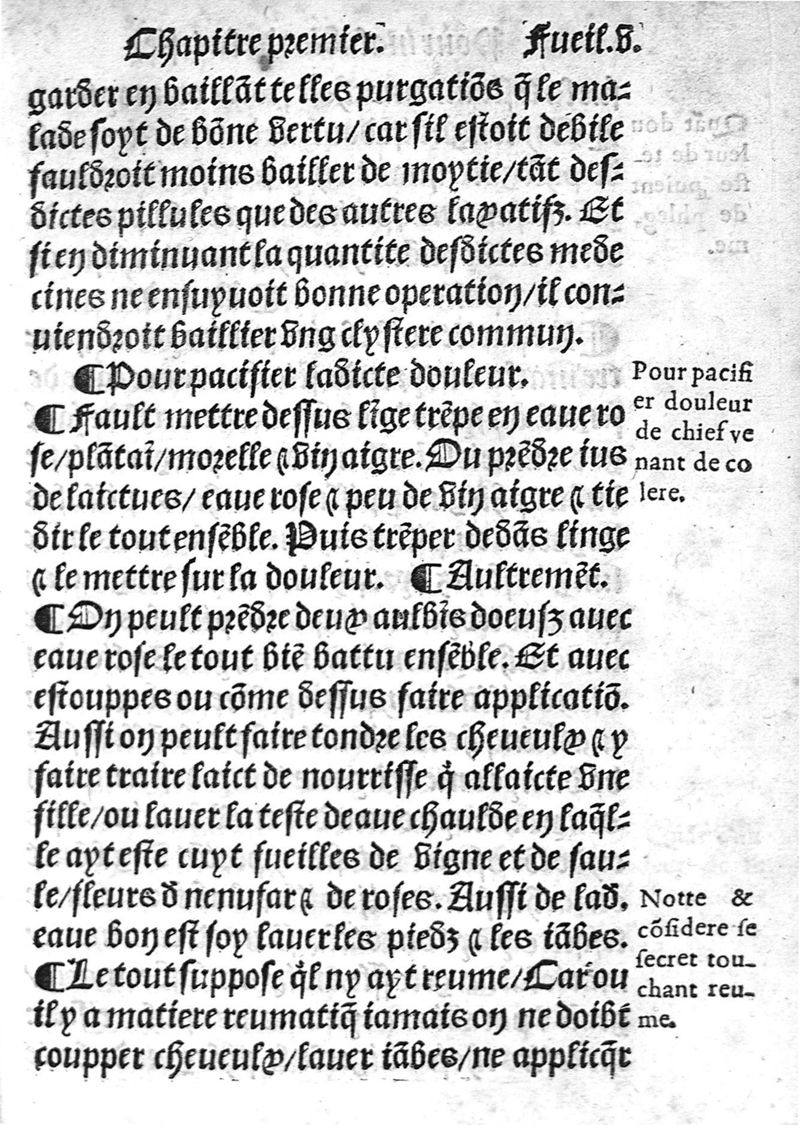 Chapitre premier. Fueil.v.
garder en baillãt telles purgatiõs q̃ le ma=
lade soyt de bõne vertu/ car sil estoit debile
fauldroit moins bailler de moytie/tãt des=
dictes pillules que des autres laxatifz. Et
si en diminuant la quantite desdictes mede
cines ne ensuyuoit bonne operation/il con=
uiendroit baillier vng clystere commun.
¶Pour pacifier ladicte douleur.
¶ Fault mettre dessus lĩge trẽpe en eaue ro
se/plãtaĩ/morelle ⁊ vin aigre. Ou prẽdre ius
de laictues/ eaue rose ⁊ peu de vin aigre ⁊ tie
dir le tout ensẽble. Puis trẽper dedãs linge
⁊ le mettre sur la douleur. ¶ Aultremẽt.
¶On peult prẽdre deux aulbĩs doeufz auec
eaue rose le tout biẽ battu ensẽble. Et auec
estouppes ou cõme dessus faire applicatiõ.
Aussi on peult faire tondre les cheueulx ⁊ y
faire traire laict de nourrisse q̃ allaicte vne
fille/ou lauer la teste deaue chaulde en laq̃l=
le ayt este cuyt fueilles de vigne et de sau=
le/fleurs d nenufar ⁊ de roses. Aussi de lad.
eaue bon est soy lauer les piedz ⁊ les iãbes.
¶Le tout suppose q̃l ny ayt reume/Car ou
il y a matiere reumatiq̃ iamais on ne doibt
coupper cheueulx/lauer iãbes/ne applicq̃r
Pour pacifi
er douleur
de chief ve
nant de co
lere.
Notte &
cõsidere se
secret tou-
chant reu-
me.